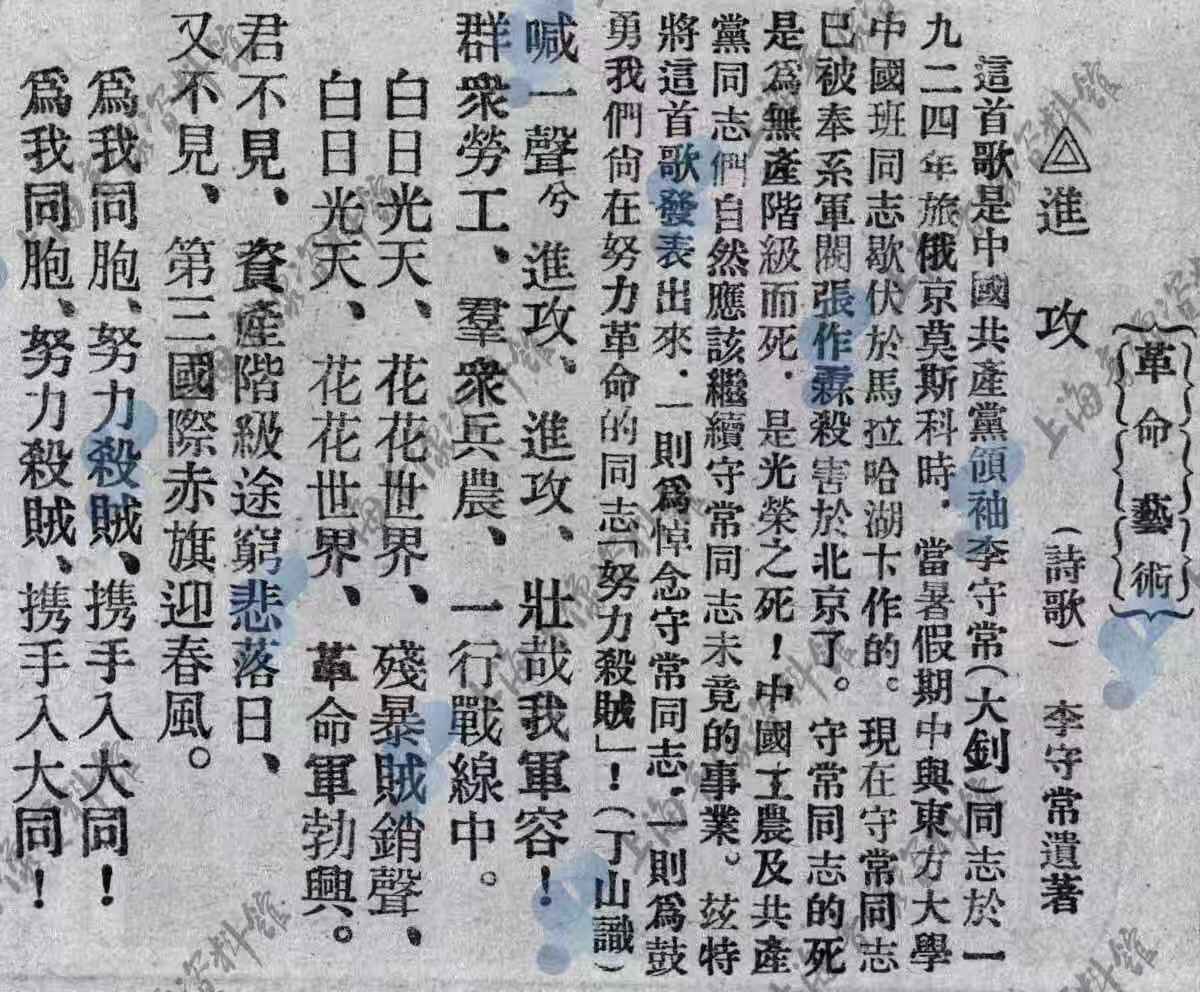 革命藝術
△進攻 (詩歌) 李守常遺著
這首歌是中國共產黨領袖李守常(大釗)同志於一
九二四年旅俄京莫斯科時,當暑假期中與東方大學
中國班同志歇伏於馬拉哈湖卡作的。現在守常同志
已被奉系軍閥張作霖殺害於北京了。守常同志的死
是爲無產階級而死,是光榮之死!中國工農及共產
黨同志們自然應該繼續守常同志未竟的事業。茲特
將這首歌發表出來,一則爲悼念守常同志,一則爲鼓
勇我們尙在努力革命的同志「努力殺賊」!(丁山識)
喊一聲兮、進攻、進攻、壯哉我軍容!
群衆勞工、羣衆兵農、一行戰線中。
白日光天、花花世界、殘暴賊銷聲、
白日光天、花花世界、革命軍勃興。
君不見、資產階級途窮悲落日、
又不見、第三國際赤旗迎春風。
爲我同胞、努力殺賊、携手入大同!
爲我同胞、努力殺賊、携手入大同!
上海圖書館